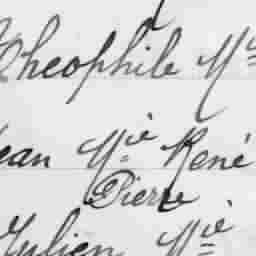 Theophile Mie
Jean Mie René
Pierre
Julien Mie